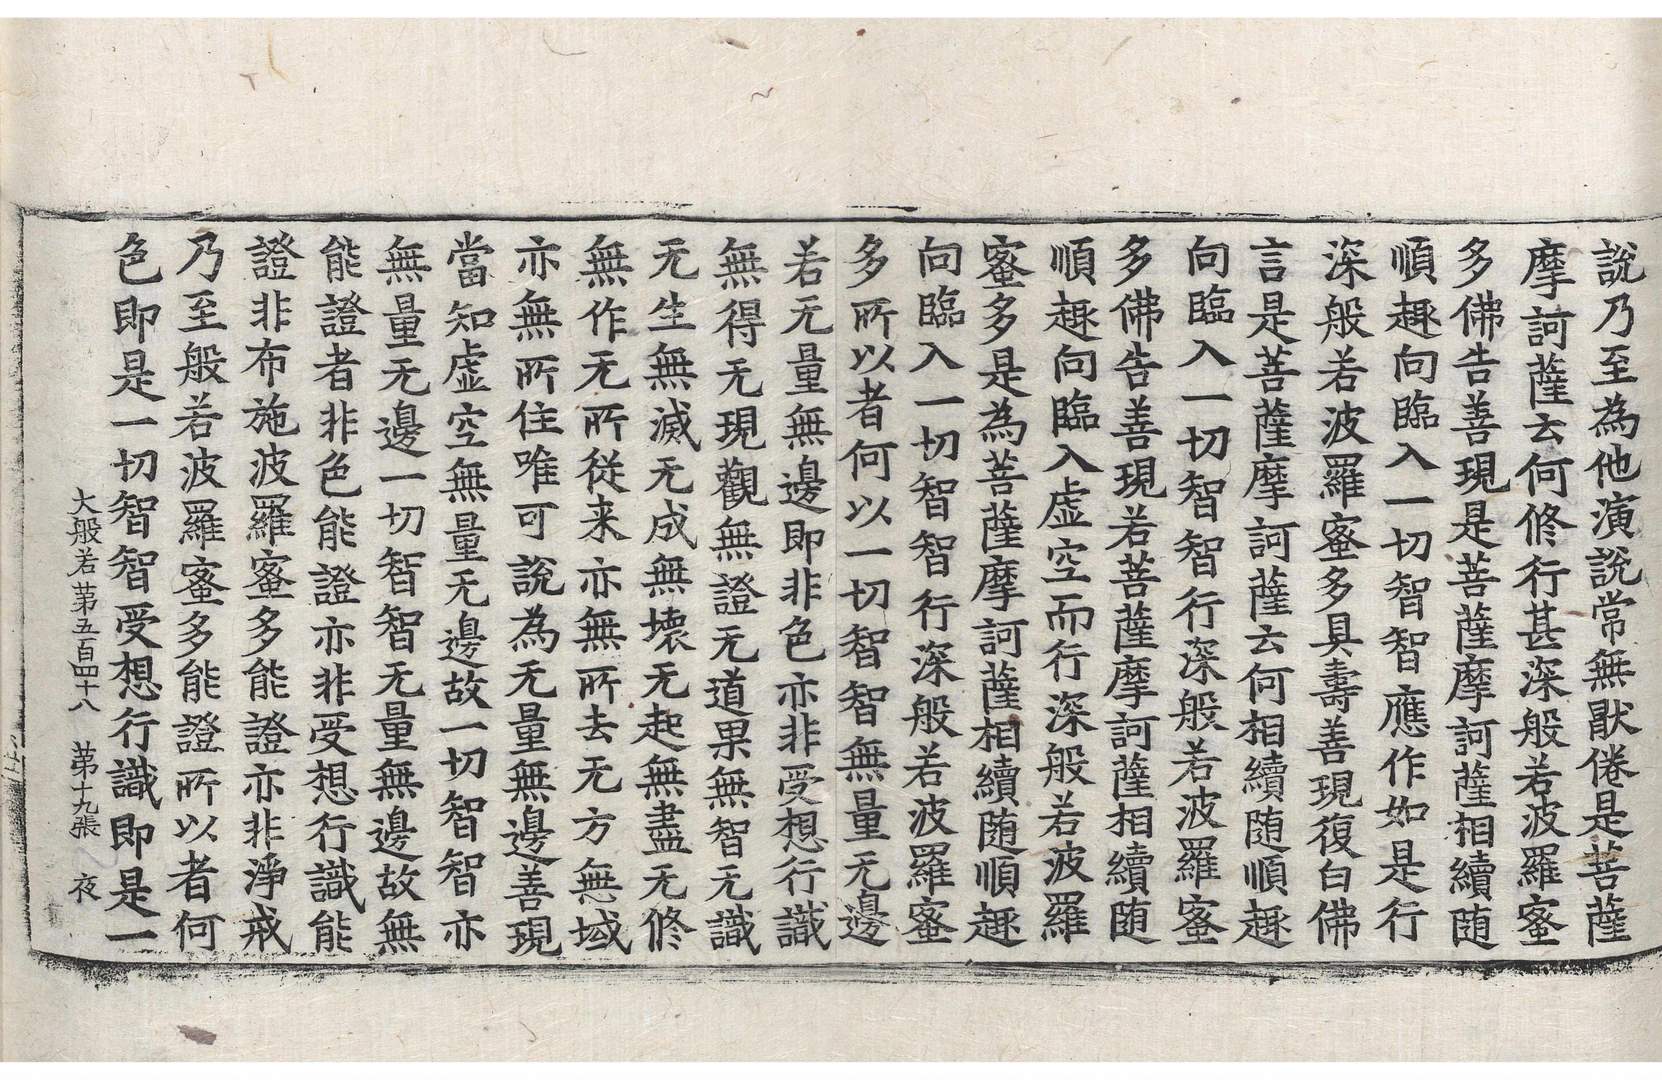 說乃至為他演說常無猒倦是菩薩
摩訶薩云何修行甚深般若波羅蜜
多佛告善現是菩薩摩訶薩相續随
順趣向臨入一切智智應作如是行
深般若波羅蜜多具壽善現復白佛
言是菩薩摩訶薩云何相續随順趣
向臨入一切智智行深般若波羅蜜
多佛告善現若菩薩摩訶薩相續随
順趣向臨入虛空而行深般若波羅
蜜多是為菩薩摩訶薩相續随順趣
向臨入一切智智行深般若波羅蜜
多所以者何以一切智智無量无邊
若无量無邊即非色亦非受想行識
無得无現觀無證无道果無智无識
无生無滅无成無壞无起無盡无修
無作无所従来亦無所去无方無域
亦無所住唯可說為无量無邊善現
當知虛空無量无邊故一切智智亦
無量无邊一切智智无量無邊故無
能證者非色能證亦非受想行識能
證非布施波羅蜜多能證亦非淨戒
乃至般若波羅蜜多能證所以者何
色即是一切智智受想行識即是一
大般若第五百四十八 第十九張 夜